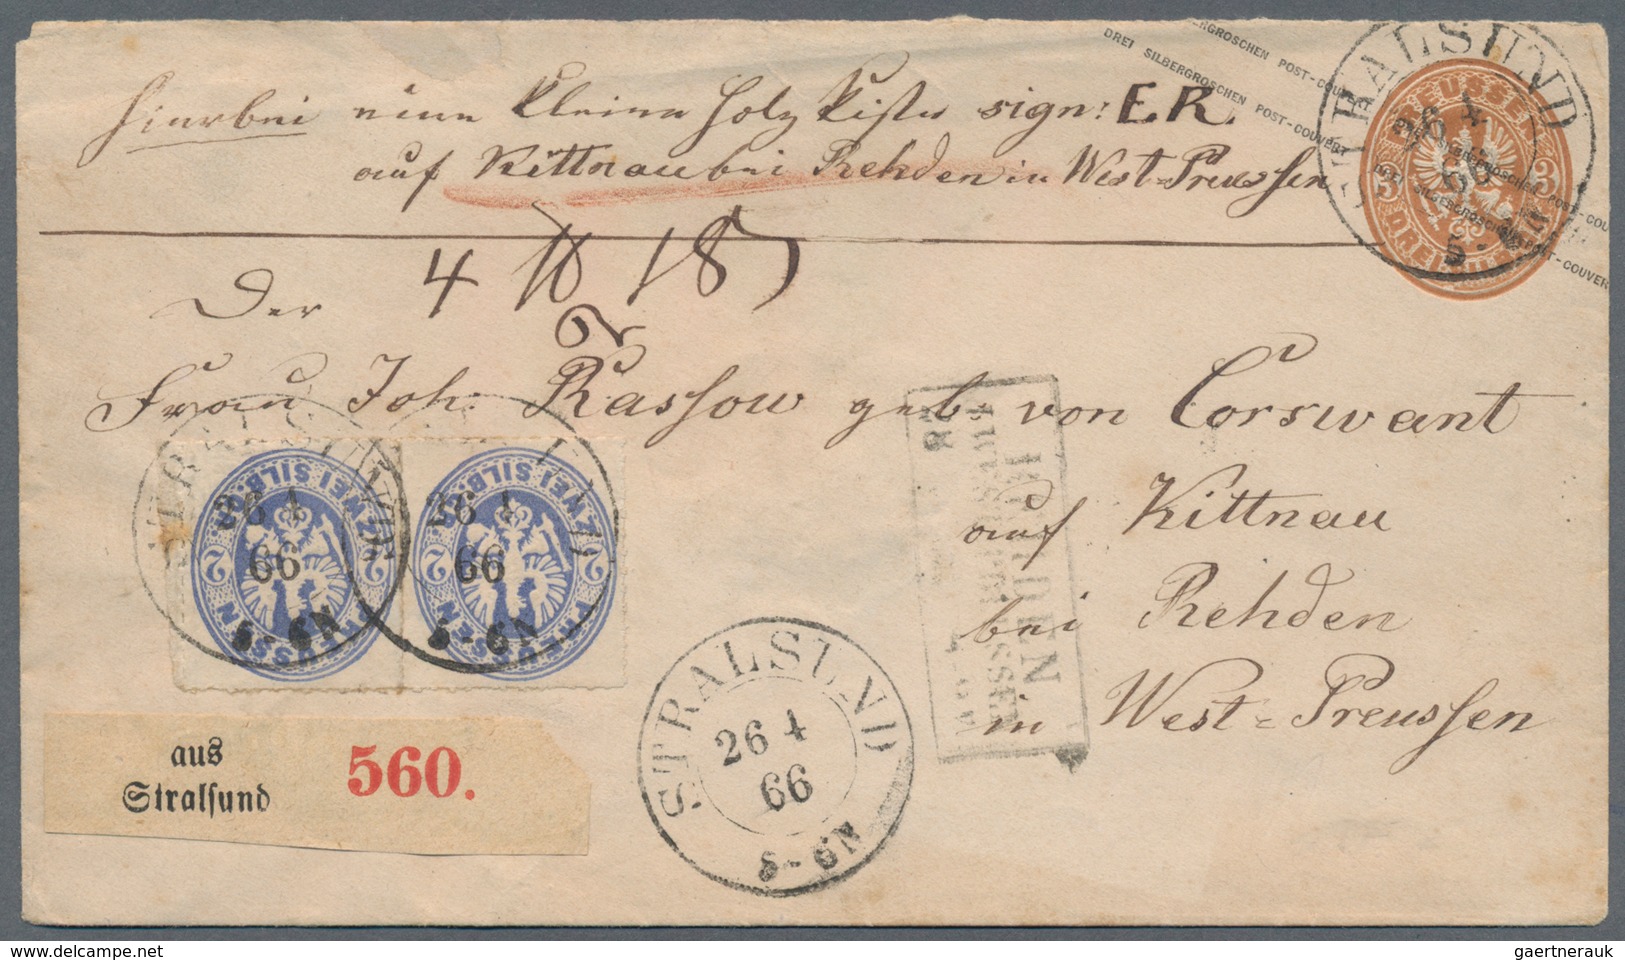 Hierbei eine kleine Holz Kiste sign: E.R.
auf Kittnau bei Rehden in West-Preussen
DREI SILBERGROSCHEN POST-COUVERT
STRALSUND
26 4
66
5-6N
PREUSSEN
3 3
DREI SILB. GR.
4
Der
Frau Joh. Rassow geb. von Corswant
auf Kittnau
bei Rehden
in West-Preussen
STRALSUND
26 4
66
5-6N
ZWEI SILB. GR.
2 2
PREUSSEN
STRALSUND
26 4
66
5-6N
ZWEI SILB. GR.
2 2
PREUSSEN
aus
Stralsund
560.
STRALSUND
26 4
66
5-6N
gaertnerauk